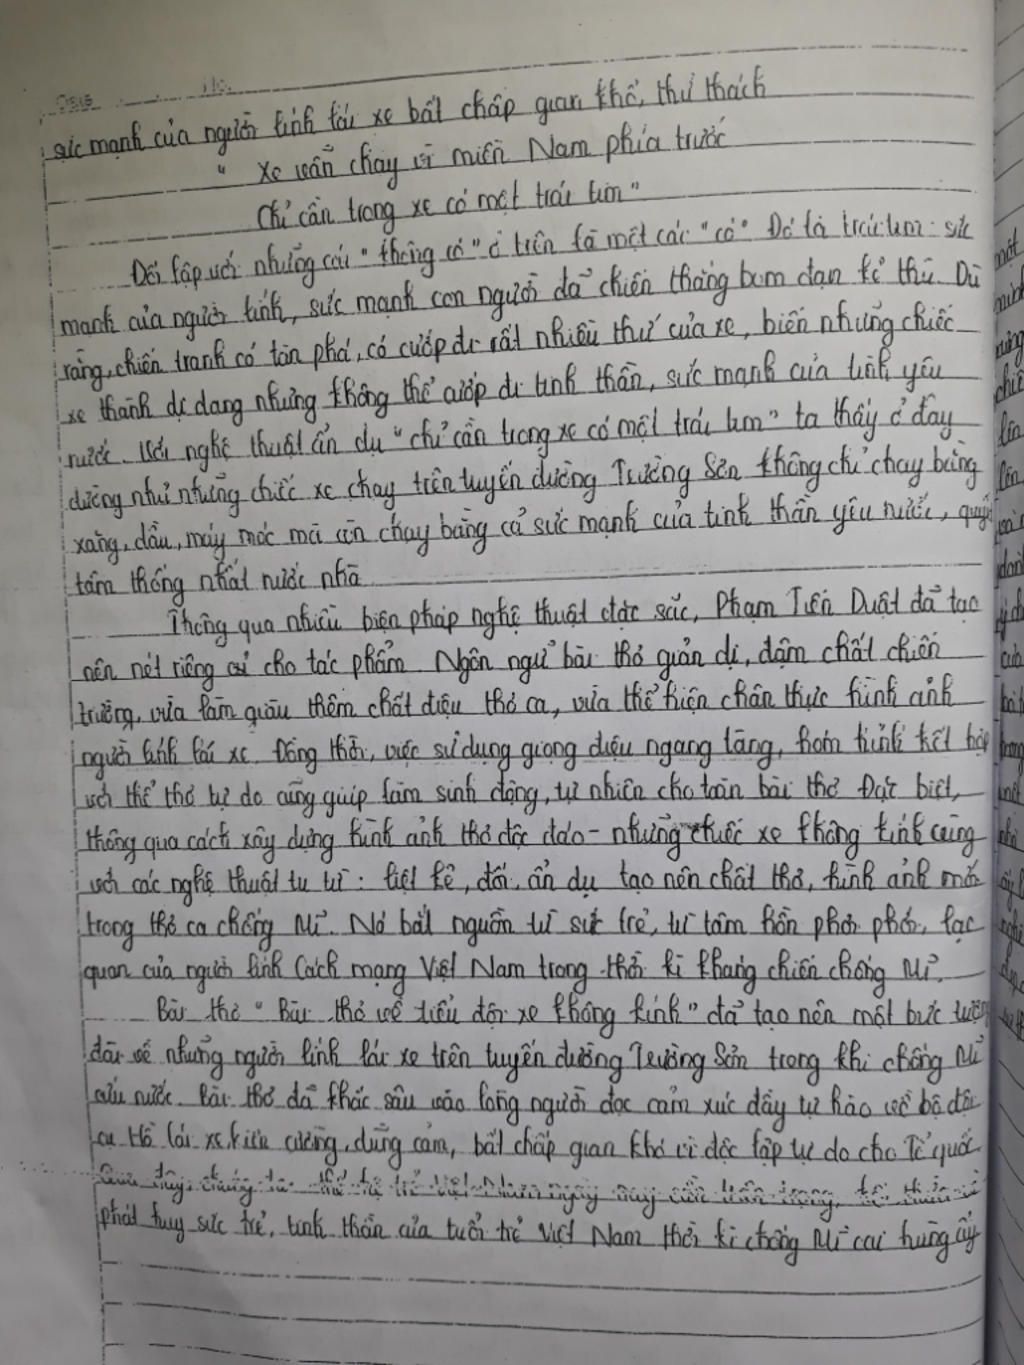 sức mạnh của người lính lái xe bất chấp gian khổ, thử thách
" Xe vẫn chạy vì miền Nam phía trước
Chỉ cần trong xe có một trái tim"
Đối lập với những cái "không có" ở trên là một cái "có" Đó là trái tim - sức
mạnh của người lính, sức mạnh con người đã chiến thắng bom đạn kẻ thù. Dù
rằng, chiến tranh có tàn phá, có cướp đi rất nhiều thứ của xe, biến những chiếc
xe thành dị dạng nhưng không thể cướp đi tinh thần, sức mạnh của tình yêu
nước. Với nghệ thuật ẩn dụ "chỉ cần trong xe có một trái tim" ta thấy ở đây
dường như những chiếc xe chạy trên tuyến đường Trường Sơn không chỉ chạy bằng
xăng, dầu, máy móc mà còn chạy bằng cả sức mạnh của tinh thần yêu nước, quyết
tâm thống nhất nước nhà
Thông qua nhiều biện pháp nghệ thuật đặc sắc, Phạm Tiến Duật đã tạo
nên nét riêng cho tác phẩm Ngôn ngữ bài thơ giản dị, đậm chất chiến
trường, vừa làm giàu thêm chất điệu thơ ca, vừa thể hiện chân thực hình ảnh
người lính lái xe. Đồng thời, việc sử dụng giọng điệu ngang tàng, hóm hỉnh kết hợp
với thể thơ tự do cũng giúp làm sinh động, tự nhiên cho toàn bài thơ Đặc biệt,
thông qua cách xây dựng hình ảnh thơ độc đáo - những chiếc xe không kính cùng
với các nghệ thuật tu từ: liệt kê, đối, ẩn dụ tạo nên chất thơ, hình ảnh mới
trong thơ ca chống Mĩ. Nó bắt nguồn từ sức trẻ, từ tâm hồn phơi phới, lạc
quan của người lính Cách mạng Việt Nam trong thời kì kháng chiến chống Mĩ.
Bài thơ "Bài thơ về tiểu đội xe không kính" đã tạo nên một bức tượng
đài về những người lính lái xe trên tuyến đường Trường Sơn trong khi chống Mĩ
cứu nước. Bài thơ đã khắc sâu vào lòng người đọc cảm xúc đầy tự hào về bộ đội
cụ Hồ lái xe kiên cường, dũng cảm, bất chấp gian khó vì độc lập tự do cho Tổ quốc
Qua đây, chúng ta thế hệ trẻ Việt Nam ngày nay cần trân trọng, kế thừa
phát huy sức trẻ, tinh thần của tuổi trẻ Việt Nam thời kì chống Mĩ hùng ấy